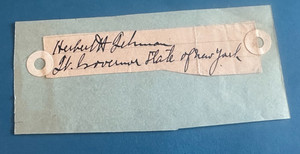 Herbert H Lehman
Lt. Governor State of New York